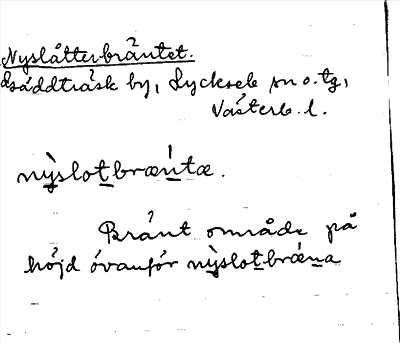 Nyslåtterbräntet.
Gäddträsk by, Lycksele sn o. tg,
Västerb. l.
nỳslot̲bræńtæ.
Bränt område på
höjd ovanför nỳslot̲bræna